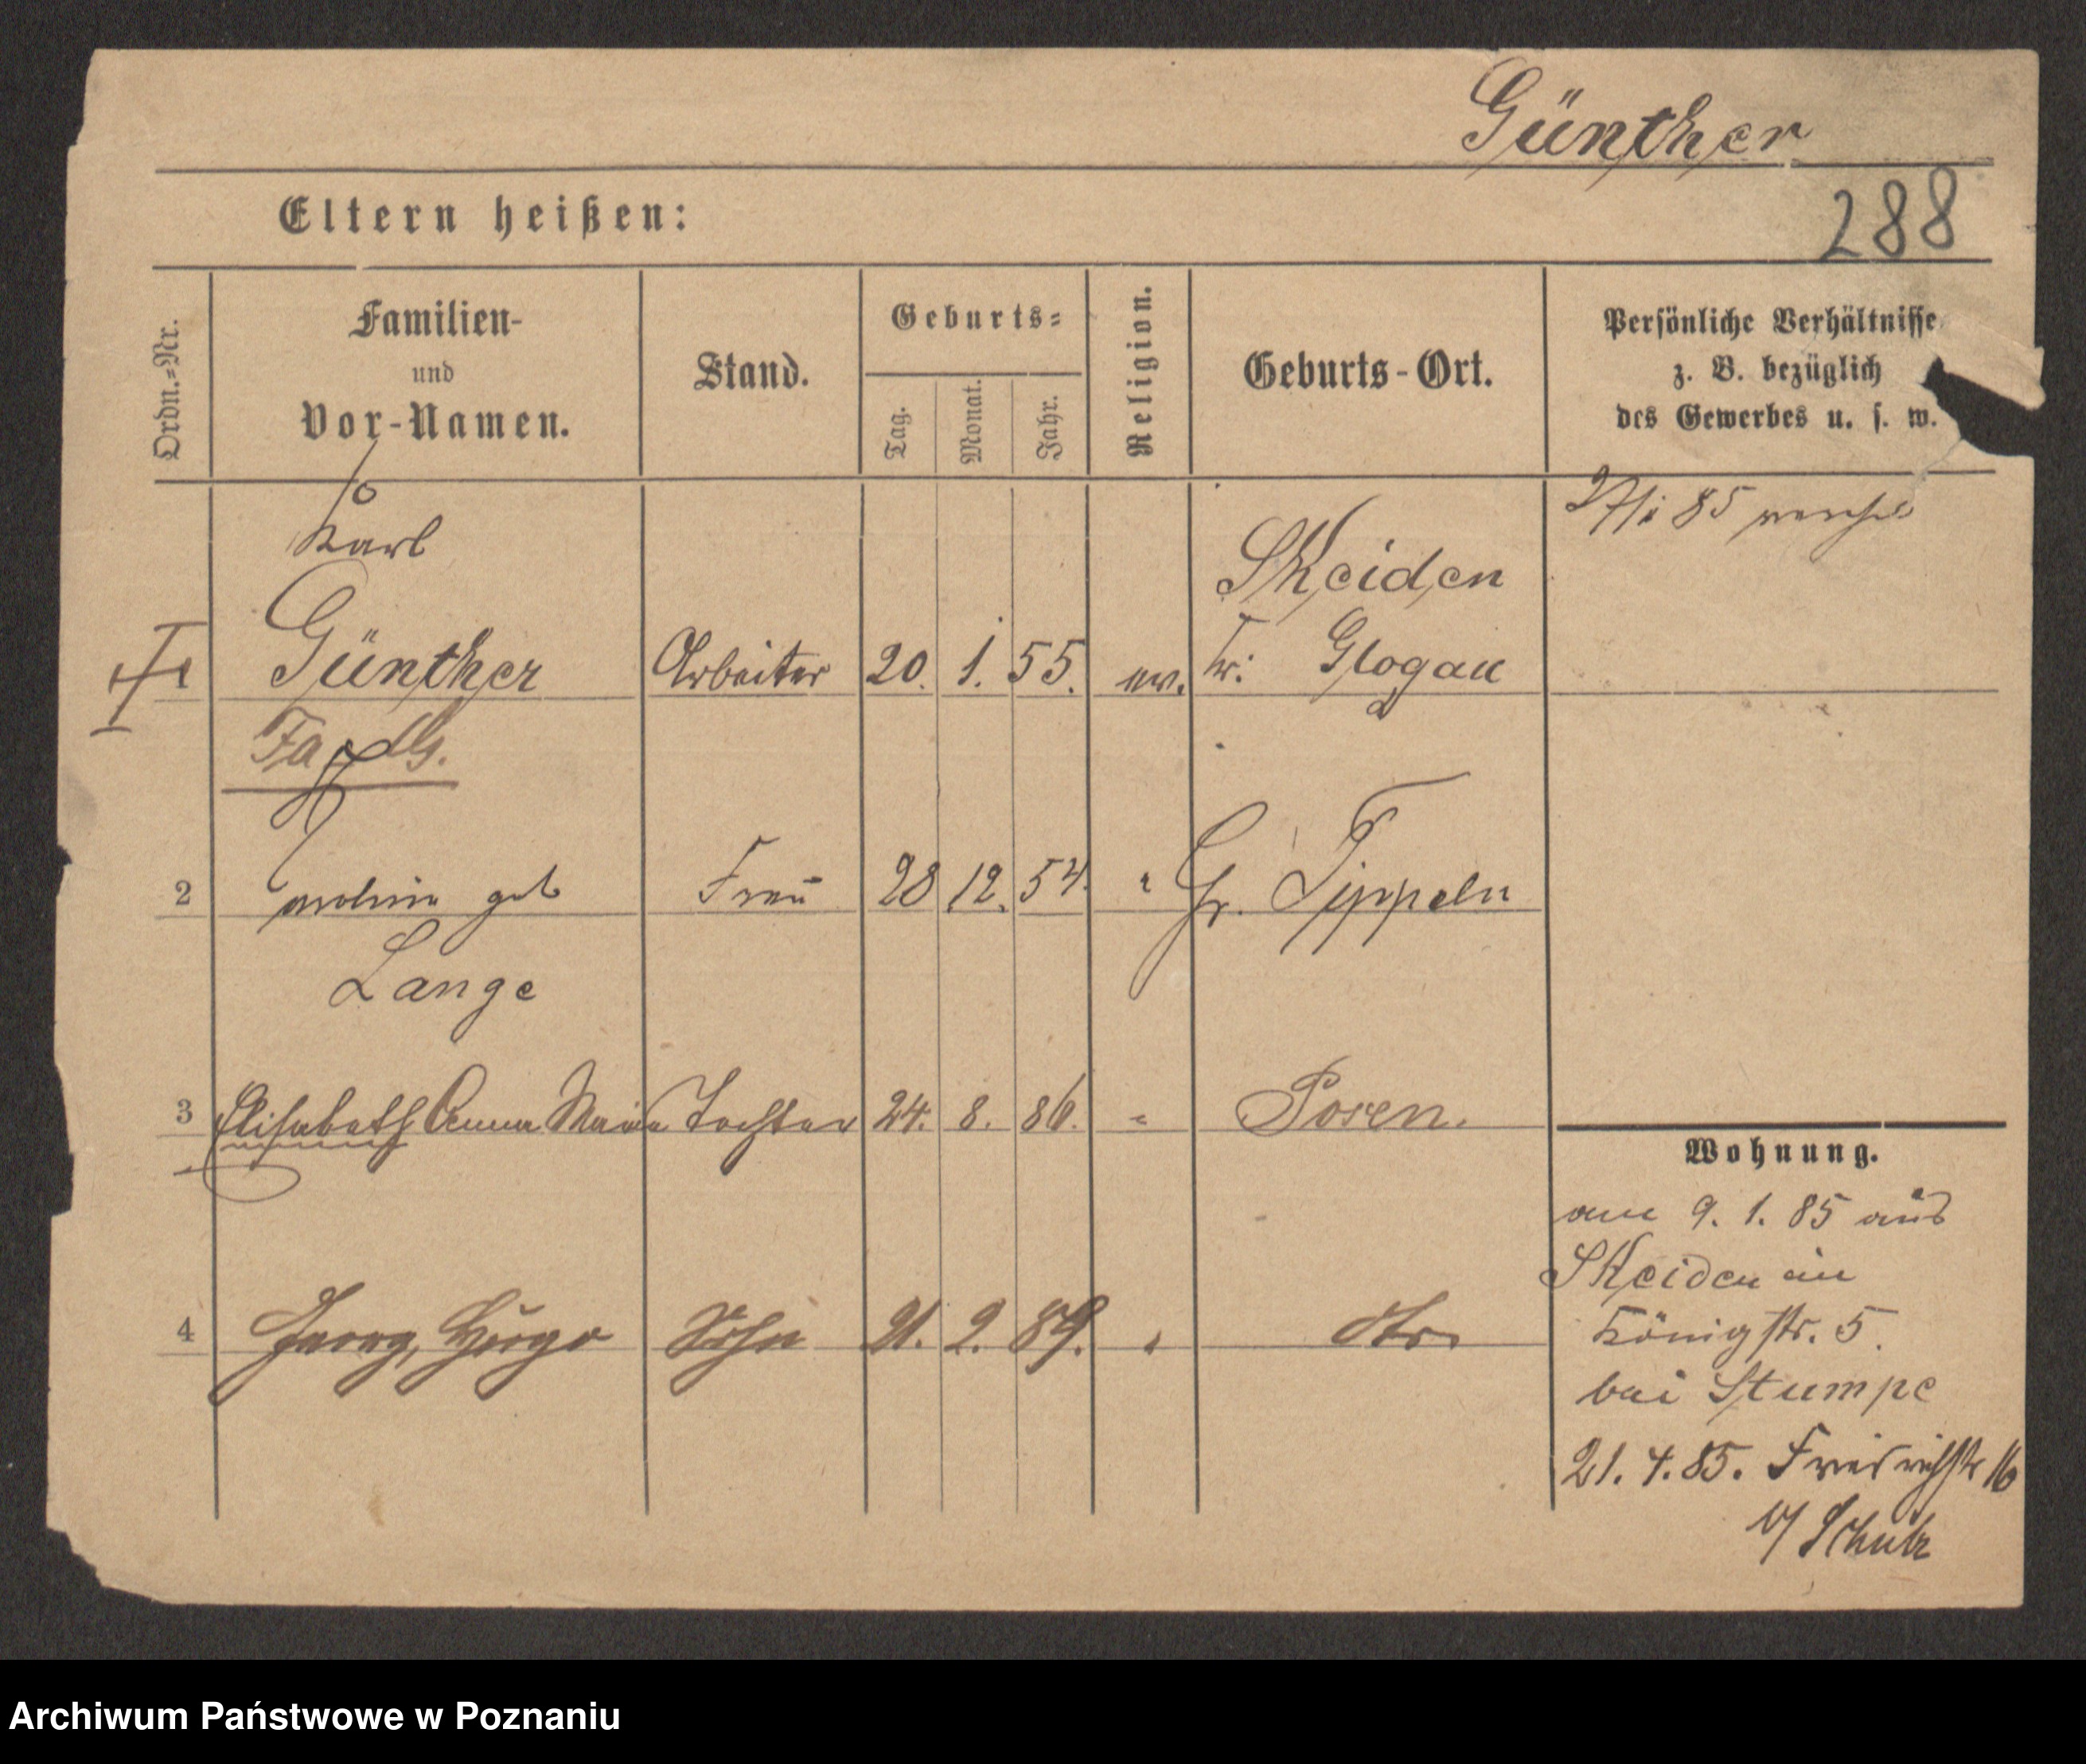 Günther
288
Eltern heißen:
Ordn.-Nr.
Familien-
und
Vor-Namen.
Stand.
Geburts-
Tag.
Monat.
Jahr.
Religion.
Geburts-Ort.
Persönliche Verhältnisse
z. B. bezüglich
des Gewerbes u. s. w.
85
Karl
Günther Arbeiter 20. 1. 55. ev.
Skeiden
Kr. Glogau
2 geb Frau 28 12. 54. " Gr. Tippeln
Lange
3 Elisabeth Anna Maria Tochter 24. 8. 86. " Posen.
4 Georg, Hugo Sohn 21. 2. 89. " dto
Wohnung.
am 9. 1. 85 aus
Skeiden in
Königstr. 5.
bei Stumpe
21. 4. 85. Friedrichstr 16
b/ Schulz
Archiwum Państwowe w Poznaniu